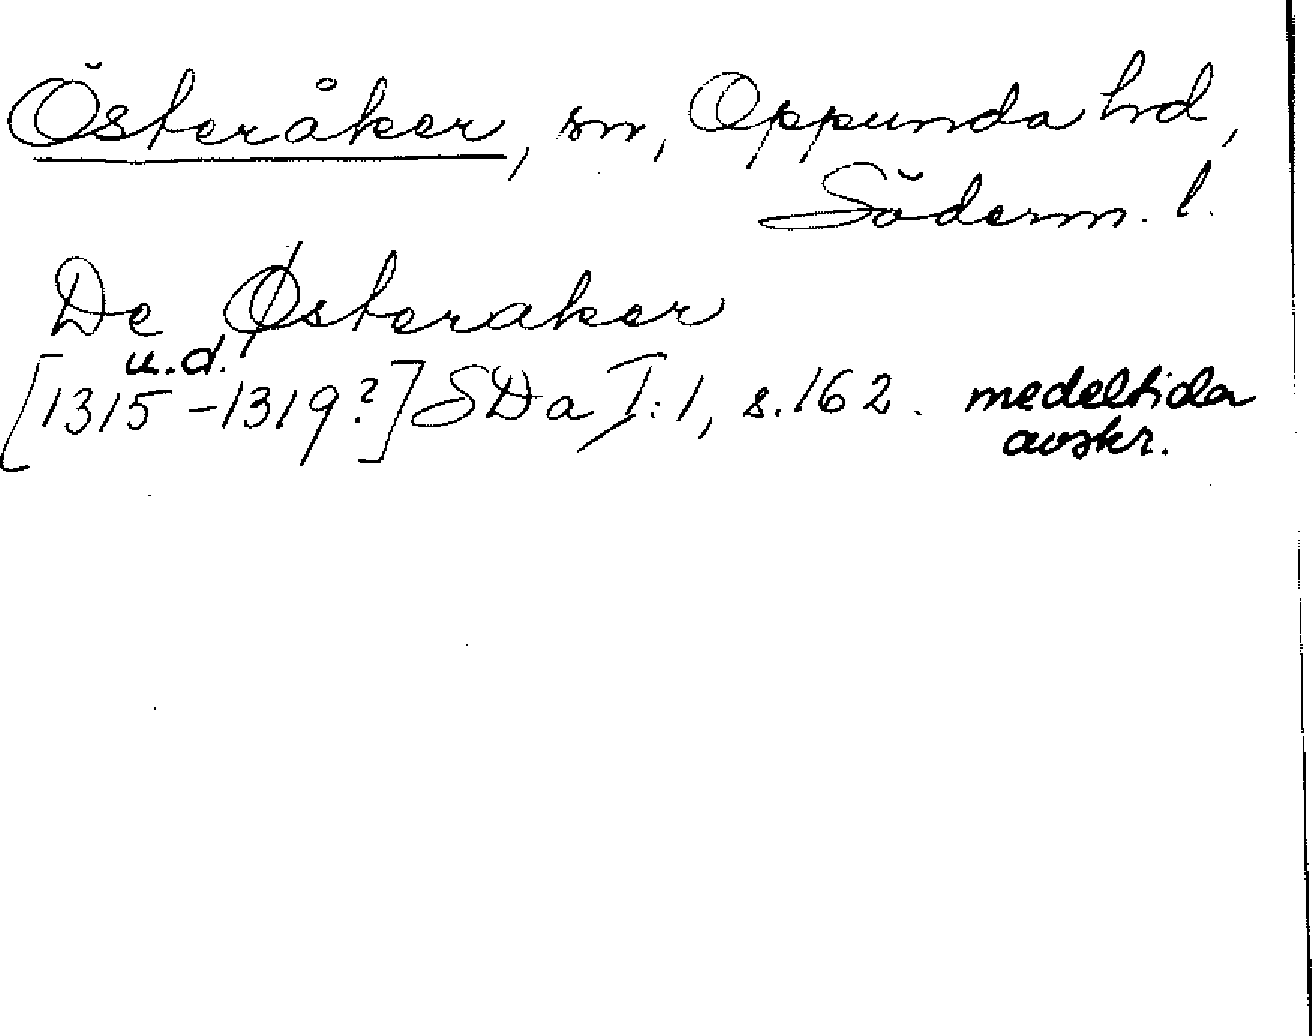 Österåker, sn, Oppunda hd,
Söderm. l.
De Østeraker
u.d.
[1315-1319?] SDa I:1, s.162. medeltida
avskr.